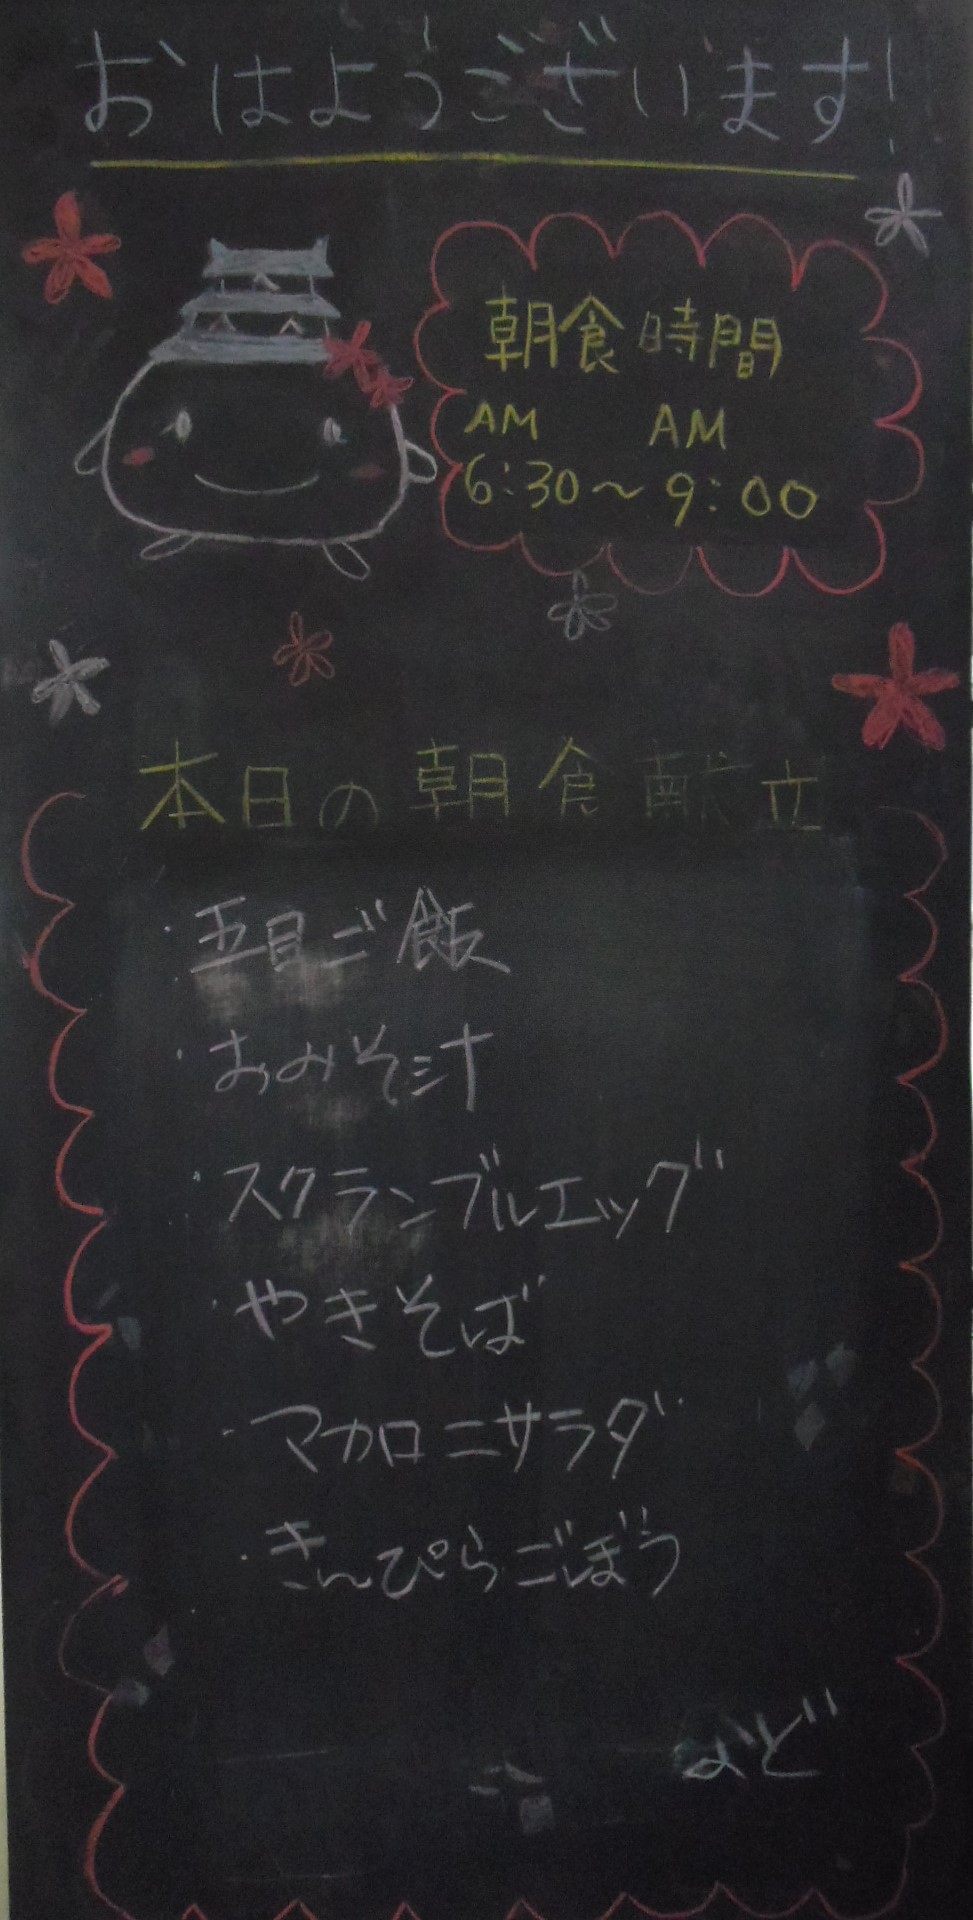 おはようございます!
朝食時間
AM AM
6:30～9:00
本日の朝食献立
・五目ご飯
・おみそ汁
・スクランブルエッグ
・やきそば
・マカロニサラダ
・きんぴらごぼう
など